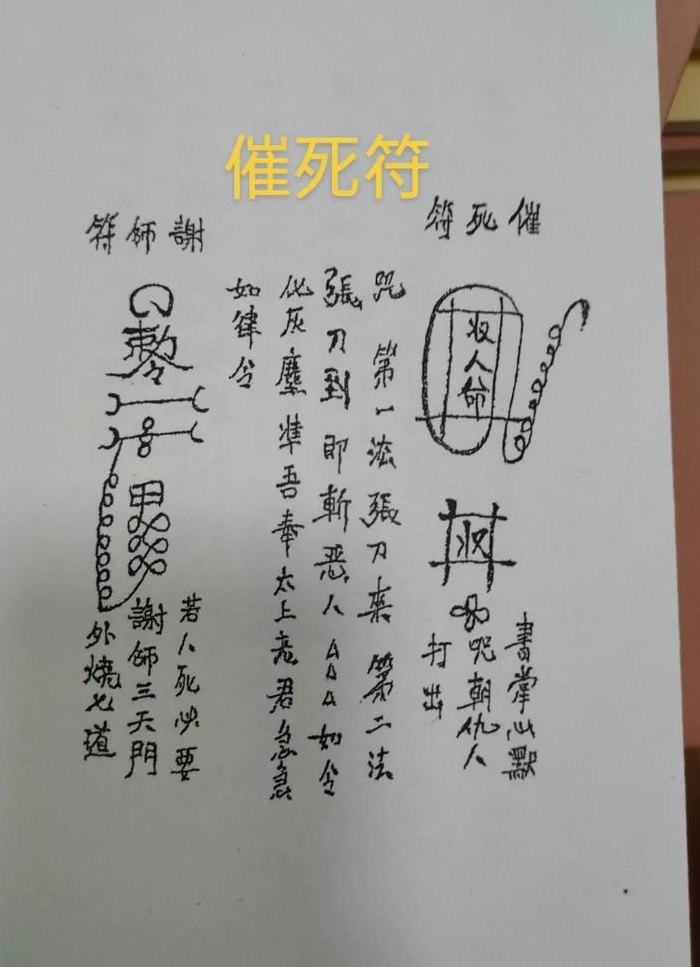 催死符
催死符
収人命
収
書掌心默
咒朝仇人
打出
咒 第一法張刀来 第二法
張刀到即斬恶人△△△如令
化灰塵準吾奉太上老君急急
如律令
謝師符
勅令
甲
若人死必要
謝師三天門
外燒七道